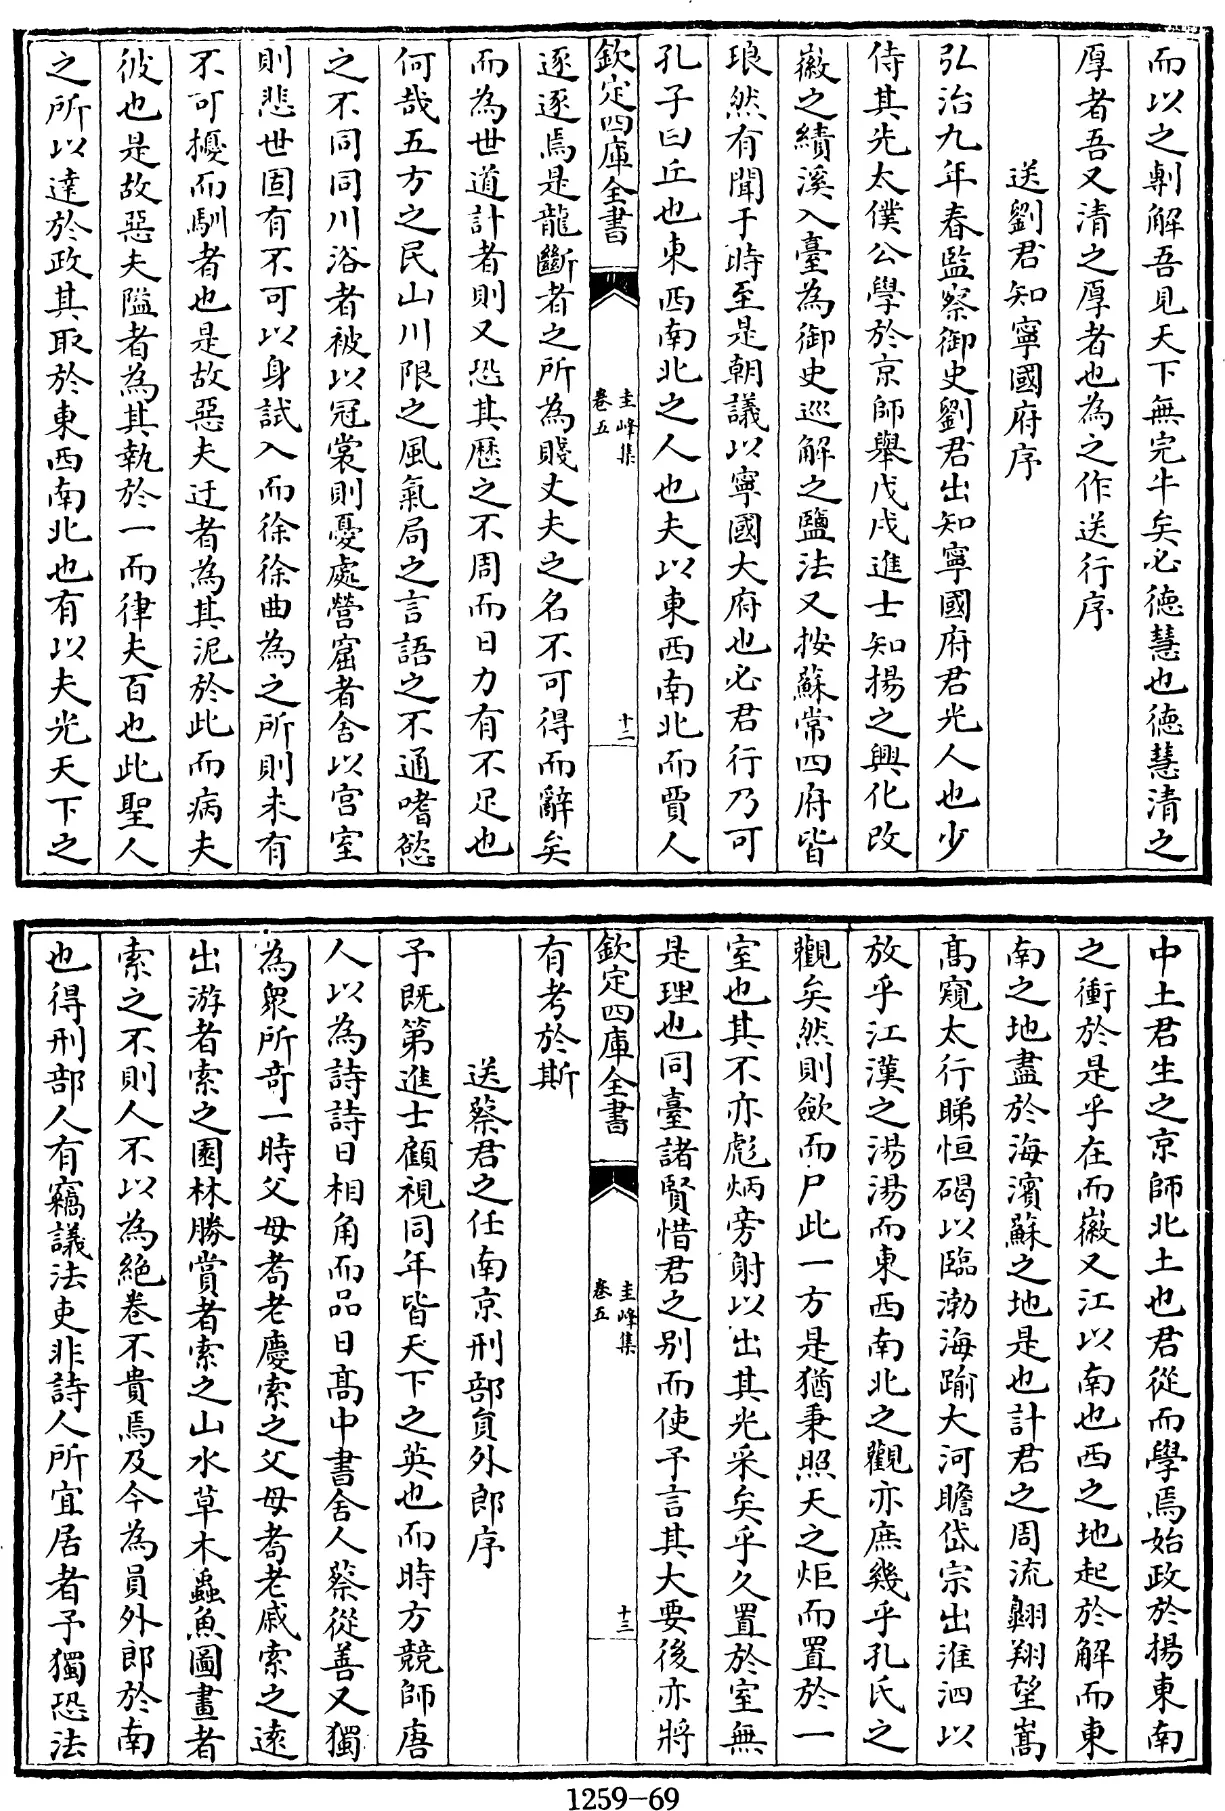 而以之剸解吾見天下無完牛矣必德慧也德慧清之
厚者吾又清之厚者也為之作送行序
送劉君知寧國府序
弘治九年春監察御史劉君出知寧國府君光人也少
侍其先太僕公學於京師舉戊戌進士知揚之興化改
徽之績溪入臺為御史巡解之鹽法又按蘇常四府皆
琅然有聞于時至是朝議以寧國大府也必君行乃可
孔子曰丘也東西南北之人也夫以東西南北而賈人
欽定四庫全書
圭峰集
卷五
十二
逐逐焉是龍斷者之所為賤丈夫之名不可得而辭矣
而為世道計者則又恐其歷之不周而日力有不足也
何哉五方之民山川限之風氣局之言語之不通嗜慾
之不同同川浴者被以冠裳則憂處營窟者舍以宮室
則悲世固有不可以身試入而徐徐曲為之所則未有
不可擾而馴者也是故惡夫迂者為其泥於此而病夫
彼也是故惡夫隘者為其執於一而律夫百也此聖人
之所以達於政其取於東西南北也有以夫光天下之
中土君生之京師北土也君從而學焉始政於揚東南
之衝於是乎在而徽又江以南也西之地起於解而東
南之地盡於海濱蘇之地是也計君之周流翺翔望嵩
高窺太行睇恒碣以臨渤海踰大河瞻岱宗出淮泗以
放乎江漢之湯湯而東西南北之觀亦庶幾乎孔氏之
觀矣然則歛而尸此一方是猶秉照天之炬而置於一
室也其不亦彪炳旁射以出其光采矣乎久置於室無
是理也同臺諸賢惜君之别而使予言其大要後亦將
欽定四庫全書
圭峰集
卷五
十三
有考於斯
送蔡君之任南京刑部員外郎序
予既第進士顧視同年皆天下之英也而時方競師唐
人以為詩詩日相角而品日髙中書舍人蔡從善又獨
為衆所竒一時父母耆老慶索之父母耆老戚索之逺
出游者索之園林勝賞者索之山水草木蟲魚圖畫者
索之不則人不以為絕卷不貴焉及今為員外郎於南
也得刑部人有竊議法吏非詩人所宜居者予獨恐法
1259-69